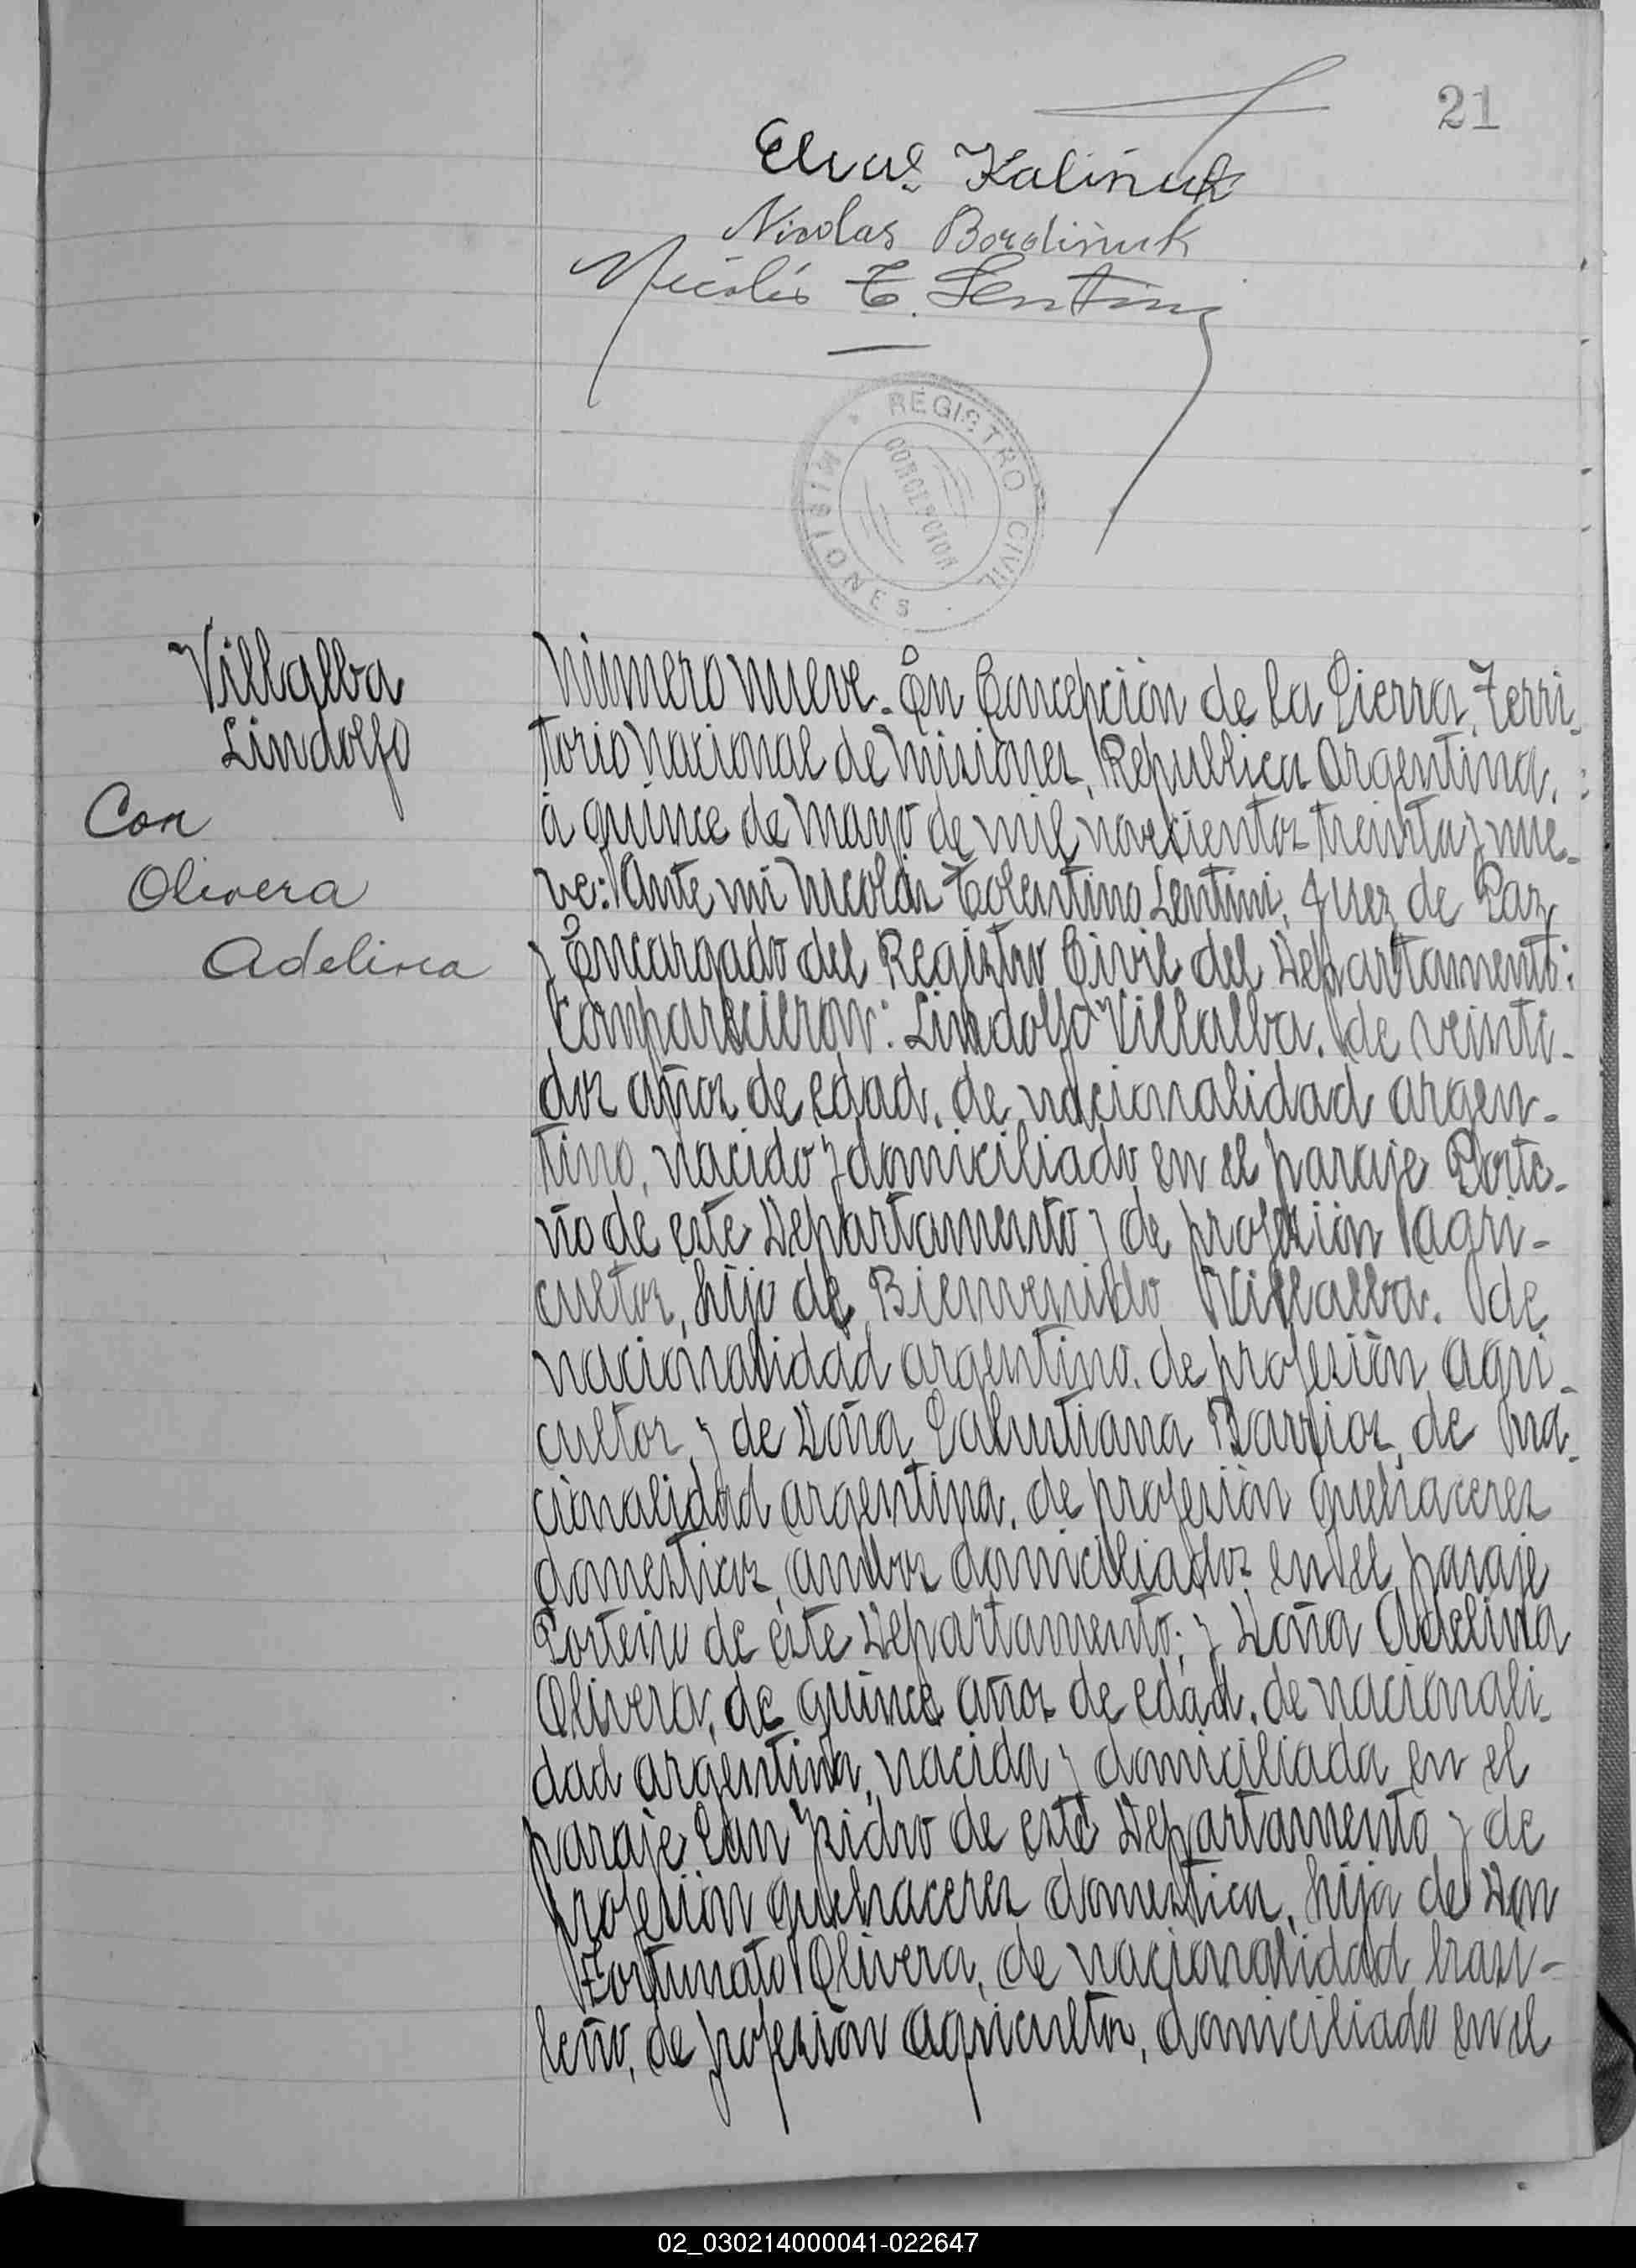 21
Kaliñuk
Nicolas Bordiñuk
Nicolás T. Lentini
REGISTRO CIVIL
CONCEPCION
MISIONES
Villalba
Lindolfo
Con
Olivera
Adelina
Número nueve. En Concepción de la Sierra, Terri-
torio Nacional de Misiones, República Argentina,
a quince de Mayo de mil novecientos treinta y nue-
ve: Ante mi Nicolás Tolentino Lentini, Juez de Paz
y Encargado del Registro Civil del Departamento:
Comparecieron: Lindolfo Villalba, de veinti-
dos años de edad, de nacionalidad argen-
tino, nacido y domiciliado en el paraje Porte-
ño de este Departamento y de profesión agri-
cultor, hijo de Bienvenido Villalba, de
nacionalidad argentino, de profesión agri-
cultor y de Doña Salustiana Barrios, de na-
cionalidad argentina, de profesión quehaceres
domesticos, ambos domiciliados en el paraje
Porteño de este Departamento; y Doña Adelina
Olivera, de quince años de edad, de nacionali-
dad argentina, nacida y domiciliada en el
paraje San Isidro de este Departamento y de
profesión quehaceres domestica, hija de Don
Fortunato Olivera, de nacionalidad brasi-
leño, de profesión agricultor, domiciliado en el
02_030214000041-022647